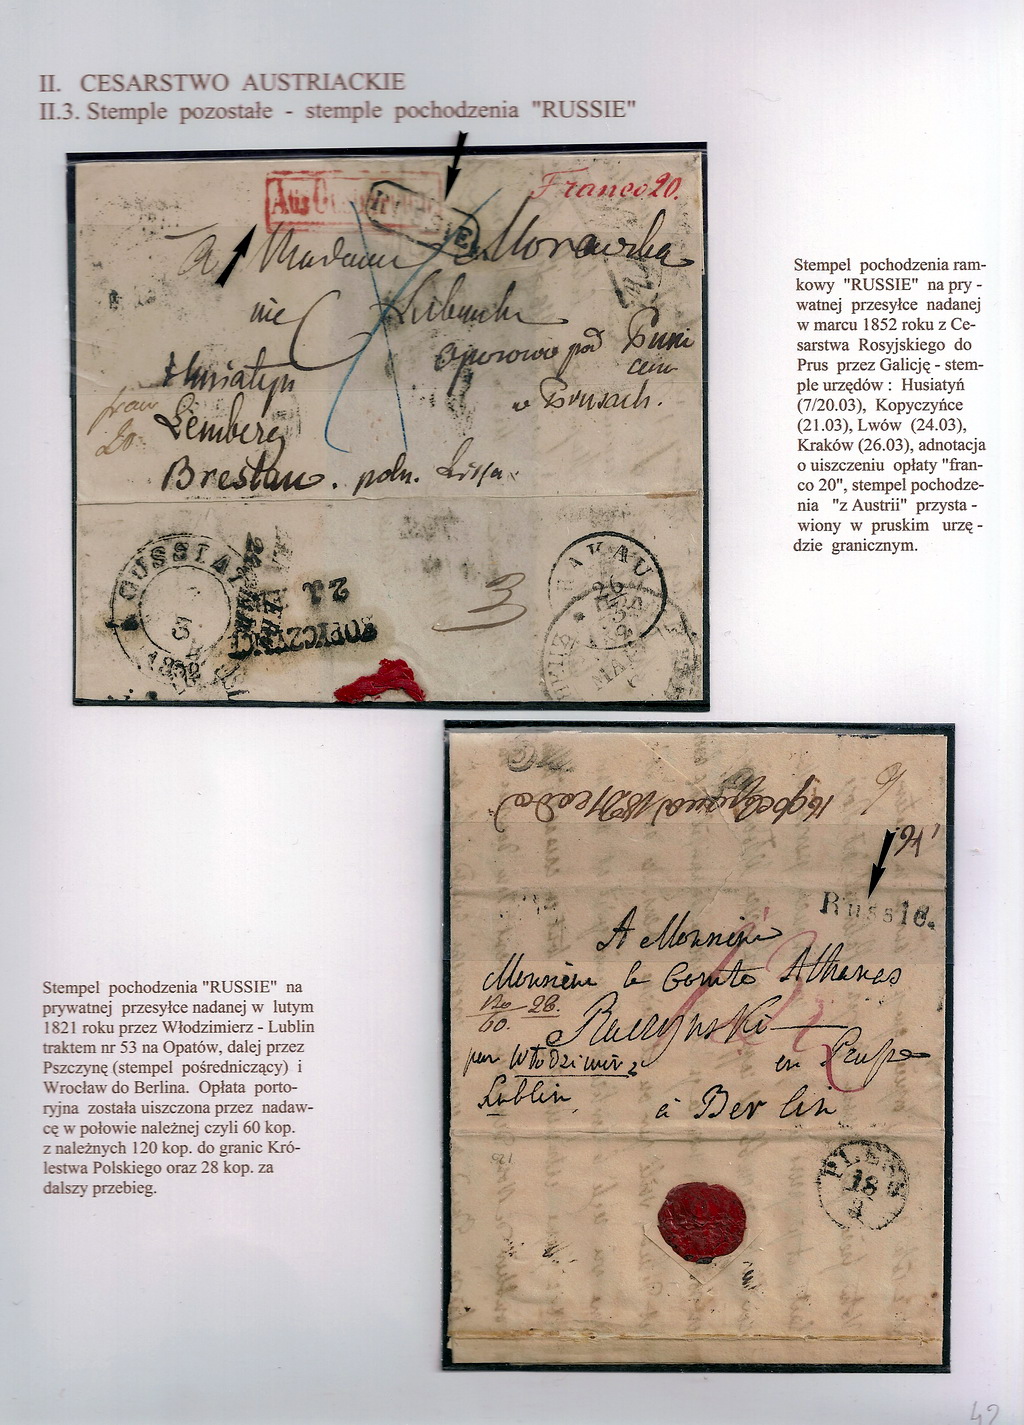 II. CESARSTWO AUSTRIACKIE
II.3. Stemple pozostałe - stemple pochodzenia "RUSSIE"
Franco 20.
a Madame Morawska
née Lubenska
Oporowo pod Puni
cem
w Prusach.
Husiatyn
fran
20
Lemberg
Breslau. poln. Lissa
GUSSIATYN
1852
KOPICZYNCE
3
KRAKAU
26
Stempel pochodzenia ram-
kowy "RUSSIE" na pry -
watnej przesyłce nadanej
w marcu 1852 roku z Ce-
sarstwa Rosyjskiego do
Prus przez Galicję - stem-
ple urzędów : Husiatyń
(7/20.03), Kopyczyńce
(21.03), Lwów (24.03),
Kraków (26.03), adnotacja
o uiszczeniu opłaty "fran-
co 20", stempel pochodze-
nia "z Austrii" przysta -
wiony w pruskim urzę -
dzie granicznym.
Russie.
A Monsieur
Monsieur le Comte Athanas
Raczynski
60. 28.
par Włodzimirz
Lublin
en Prusse
à Berlin
PLESS
18
Stempel pochodzenia "RUSSIE" na
prywatnej przesyłce nadanej w lutym
1821 roku przez Włodzimierz - Lublin
traktem nr 53 na Opatów, dalej przez
Pszczynę (stempel pośredniczący) i
Wrocław do Berlina. Opłata porto-
ryjna została uiszczona przez nadaw-
cę w połowie należnej czyli 60 kop.
z należnych 120 kop. do granic Kró-
lestwa Polskiego oraz 28 kop. za
dalszy przebieg.
42